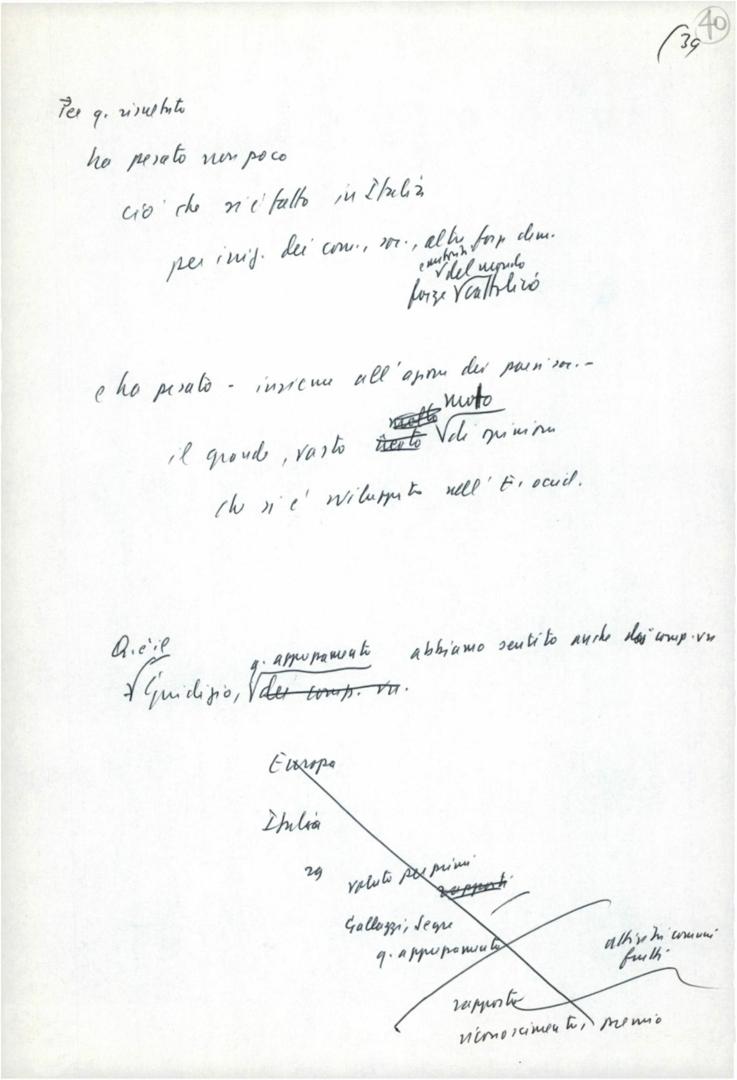 40
(39
Per q. risultato
ha pesato non poco
ciò che si è fatto in Italia
per iniz. dei com., soc., altre forze dem.
del mondo
forze cattolico
e ha pesato - insieme all'azione dei paesi soc. -
molto moto
il grande, vasto di opinione
che si è sviluppato nell'E. occid.
Q. è il
q. apprezzamento abbiamo sentito anche dai comp. vn
Giudizio, dei comp. vn.
Europa
Italia
29 voluto per primi
rapporti
Galluzzi, Segre
q. apprezzamento
comuni
frutti
rapporto
riconoscimento, premio